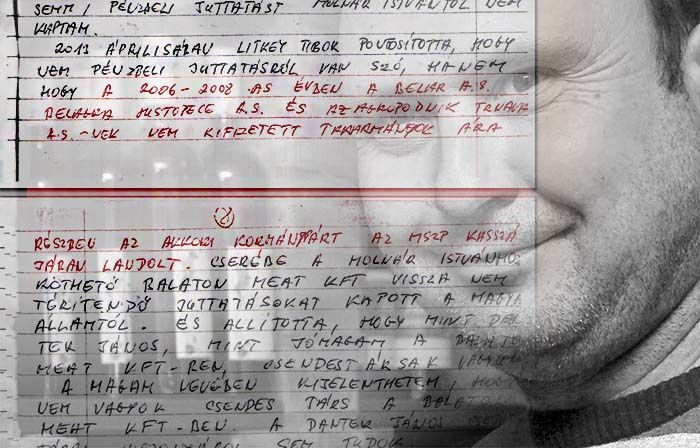 SEMMI PÉNZBELI JUTTATÁST MOLNÁR ISTVÁNTÓL NEM
KAPTAM.
2013 ÁPRILISÁBAN LITKEY TIBOR PONTOSÍTOTTA, HOGY
NEM PÉNZBELI JUTTATÁSRÓL VAN SZÓ, HANEM
HOGY A 2006-2008 AS ÉVBEN A BELAR A.S.
A.S. ÉS AZ AGROPODNIK TRNAVA
A.S.-NEK NEM KIFIZETETT TAKARMÁNYOK ÁRA
2
RÉSZBEN AZ AKKORI KORMÁNYPÁRT AZ MSZP KASSZÁ
JÁBAN LANDOLT. CSERÉBE A MOLNÁR ISTVÁNHOZ
KÖTHETŐ BALATON MEAT KFT VISSZA NEM
TÉRÍTENDŐ JUTTATÁSOKAT KAPOTT A MAGYA
ÁLLAMTÓL. ÉS ÁLLÍTOTTA, HOGY MINT DAN
TER JÁNOS, MINT JÓMAGAM A BALATO
MEAT KFT-BEN, CSENDESTÁRSAK
A MAGAM NEVÉBEN KIJELENTHETEM, HOGY
NEM VAGYOK CSENDES TÁRS A BALATO
MEAT KFT-BEN. A DANTER JÁNOS
SEM TUDOK